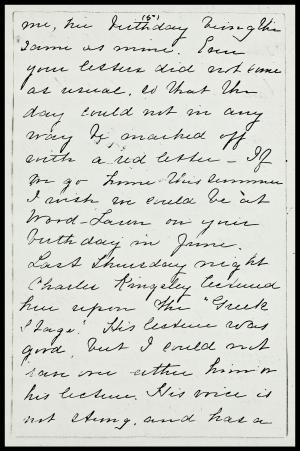 (5)
me, her birthday being the
same as mine. Even
your letters did not come
as usual, so that the
day could not in any
way be marked off
with a red letter — If
we go home this summer
I wish we could be at
Wood-Lawn on your
birthday in June.
Last Thursday night
Charles Kingsley lectured
here upon the "Greek
Stage." His lecture was
good, but I could not
rave over either him or
his lecture. His voice is
not strong, and has a